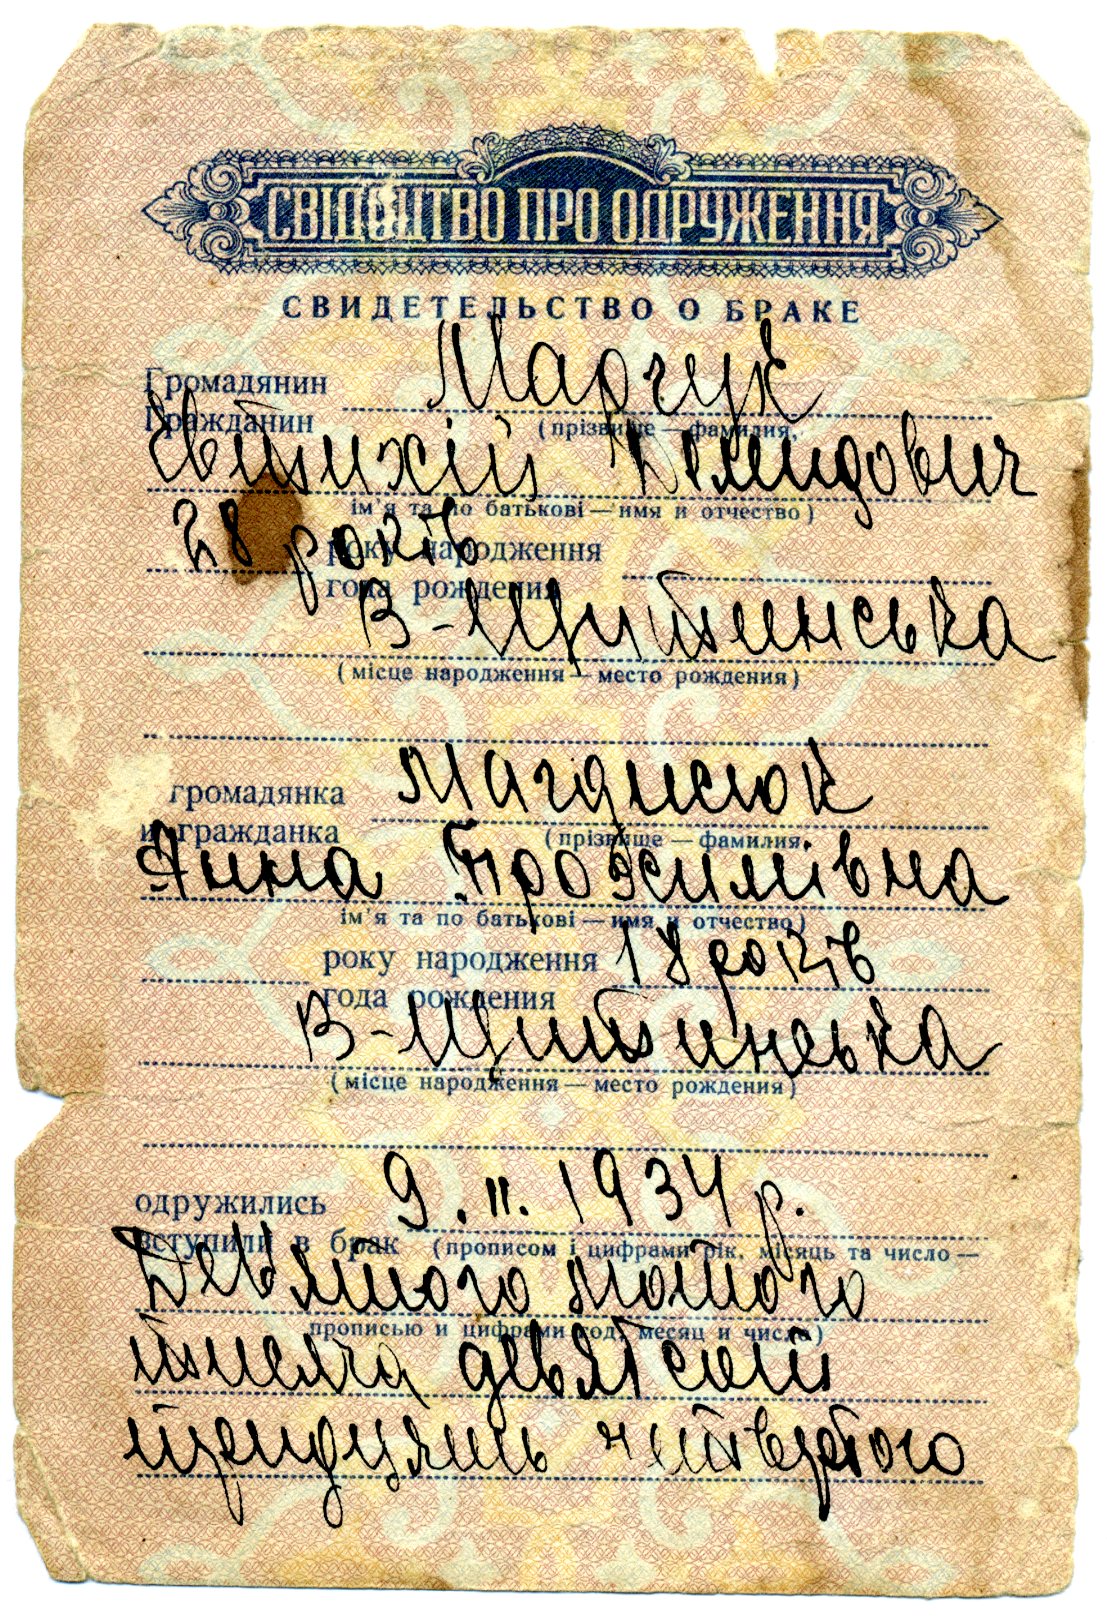 СВІДОЦТВО ПРО ОДРУЖЕННЯ
СВИДЕТЕЛЬСТВО О БРАКЕ
Громадянин Марчук
Гражданин
(прізвище — фамилия,
Євтихій Демидович
ім'я та по батькові — имя и отчество)
28 років року народження
года рождения
В-Щитинська
(місце народження — место рождения)
громадянка Магдисюк
и гражданка
(прізвище — фамилия,
Анна Трохимівна
ім'я та по батькові — имя и отчество)
року народження 18 років
года рождения
В-Щитинська
(місце народження — место рождения)
одружились 9. II. 1934 р.
вступили в брак (прописом і цифрами рік, місяць та число —
Девятого лютого
прописью и цифрами год, месяц и число)
тисяча девятсот
тридцять четвертого